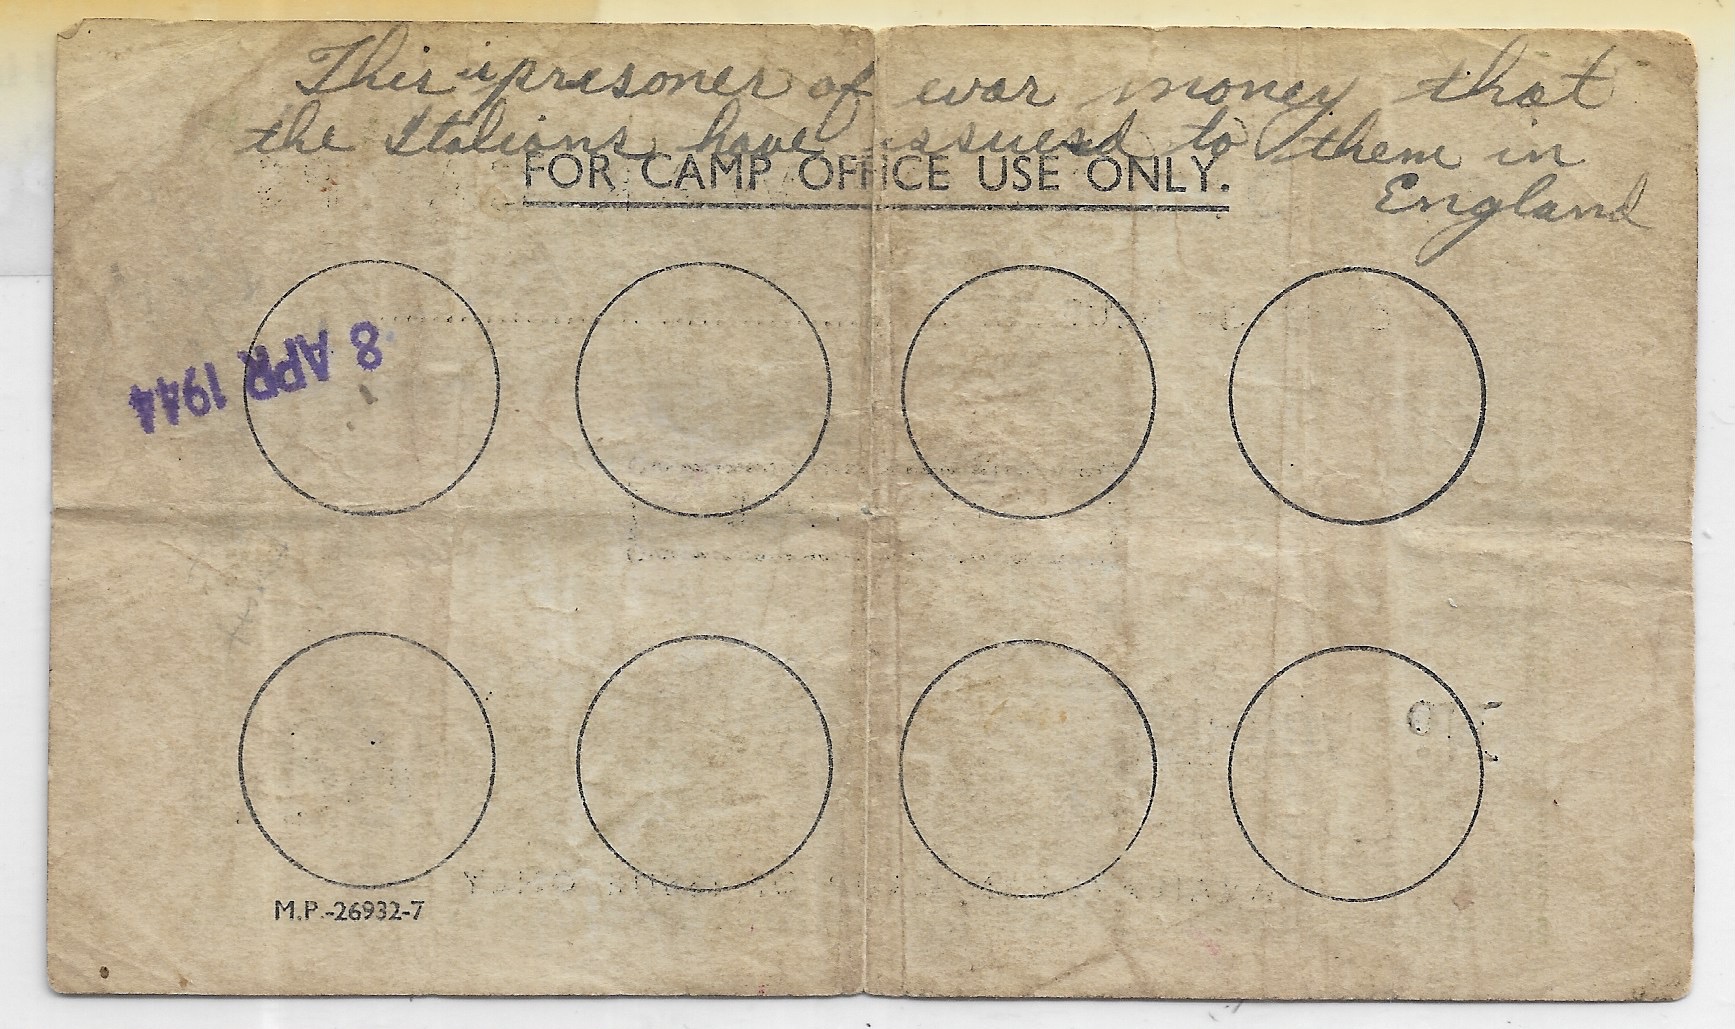 This is prisoner of war money that
the Italians have issued to them in
England
FOR CAMP OFFICE USE ONLY.
8 APR 1944
M.P.-26932-7